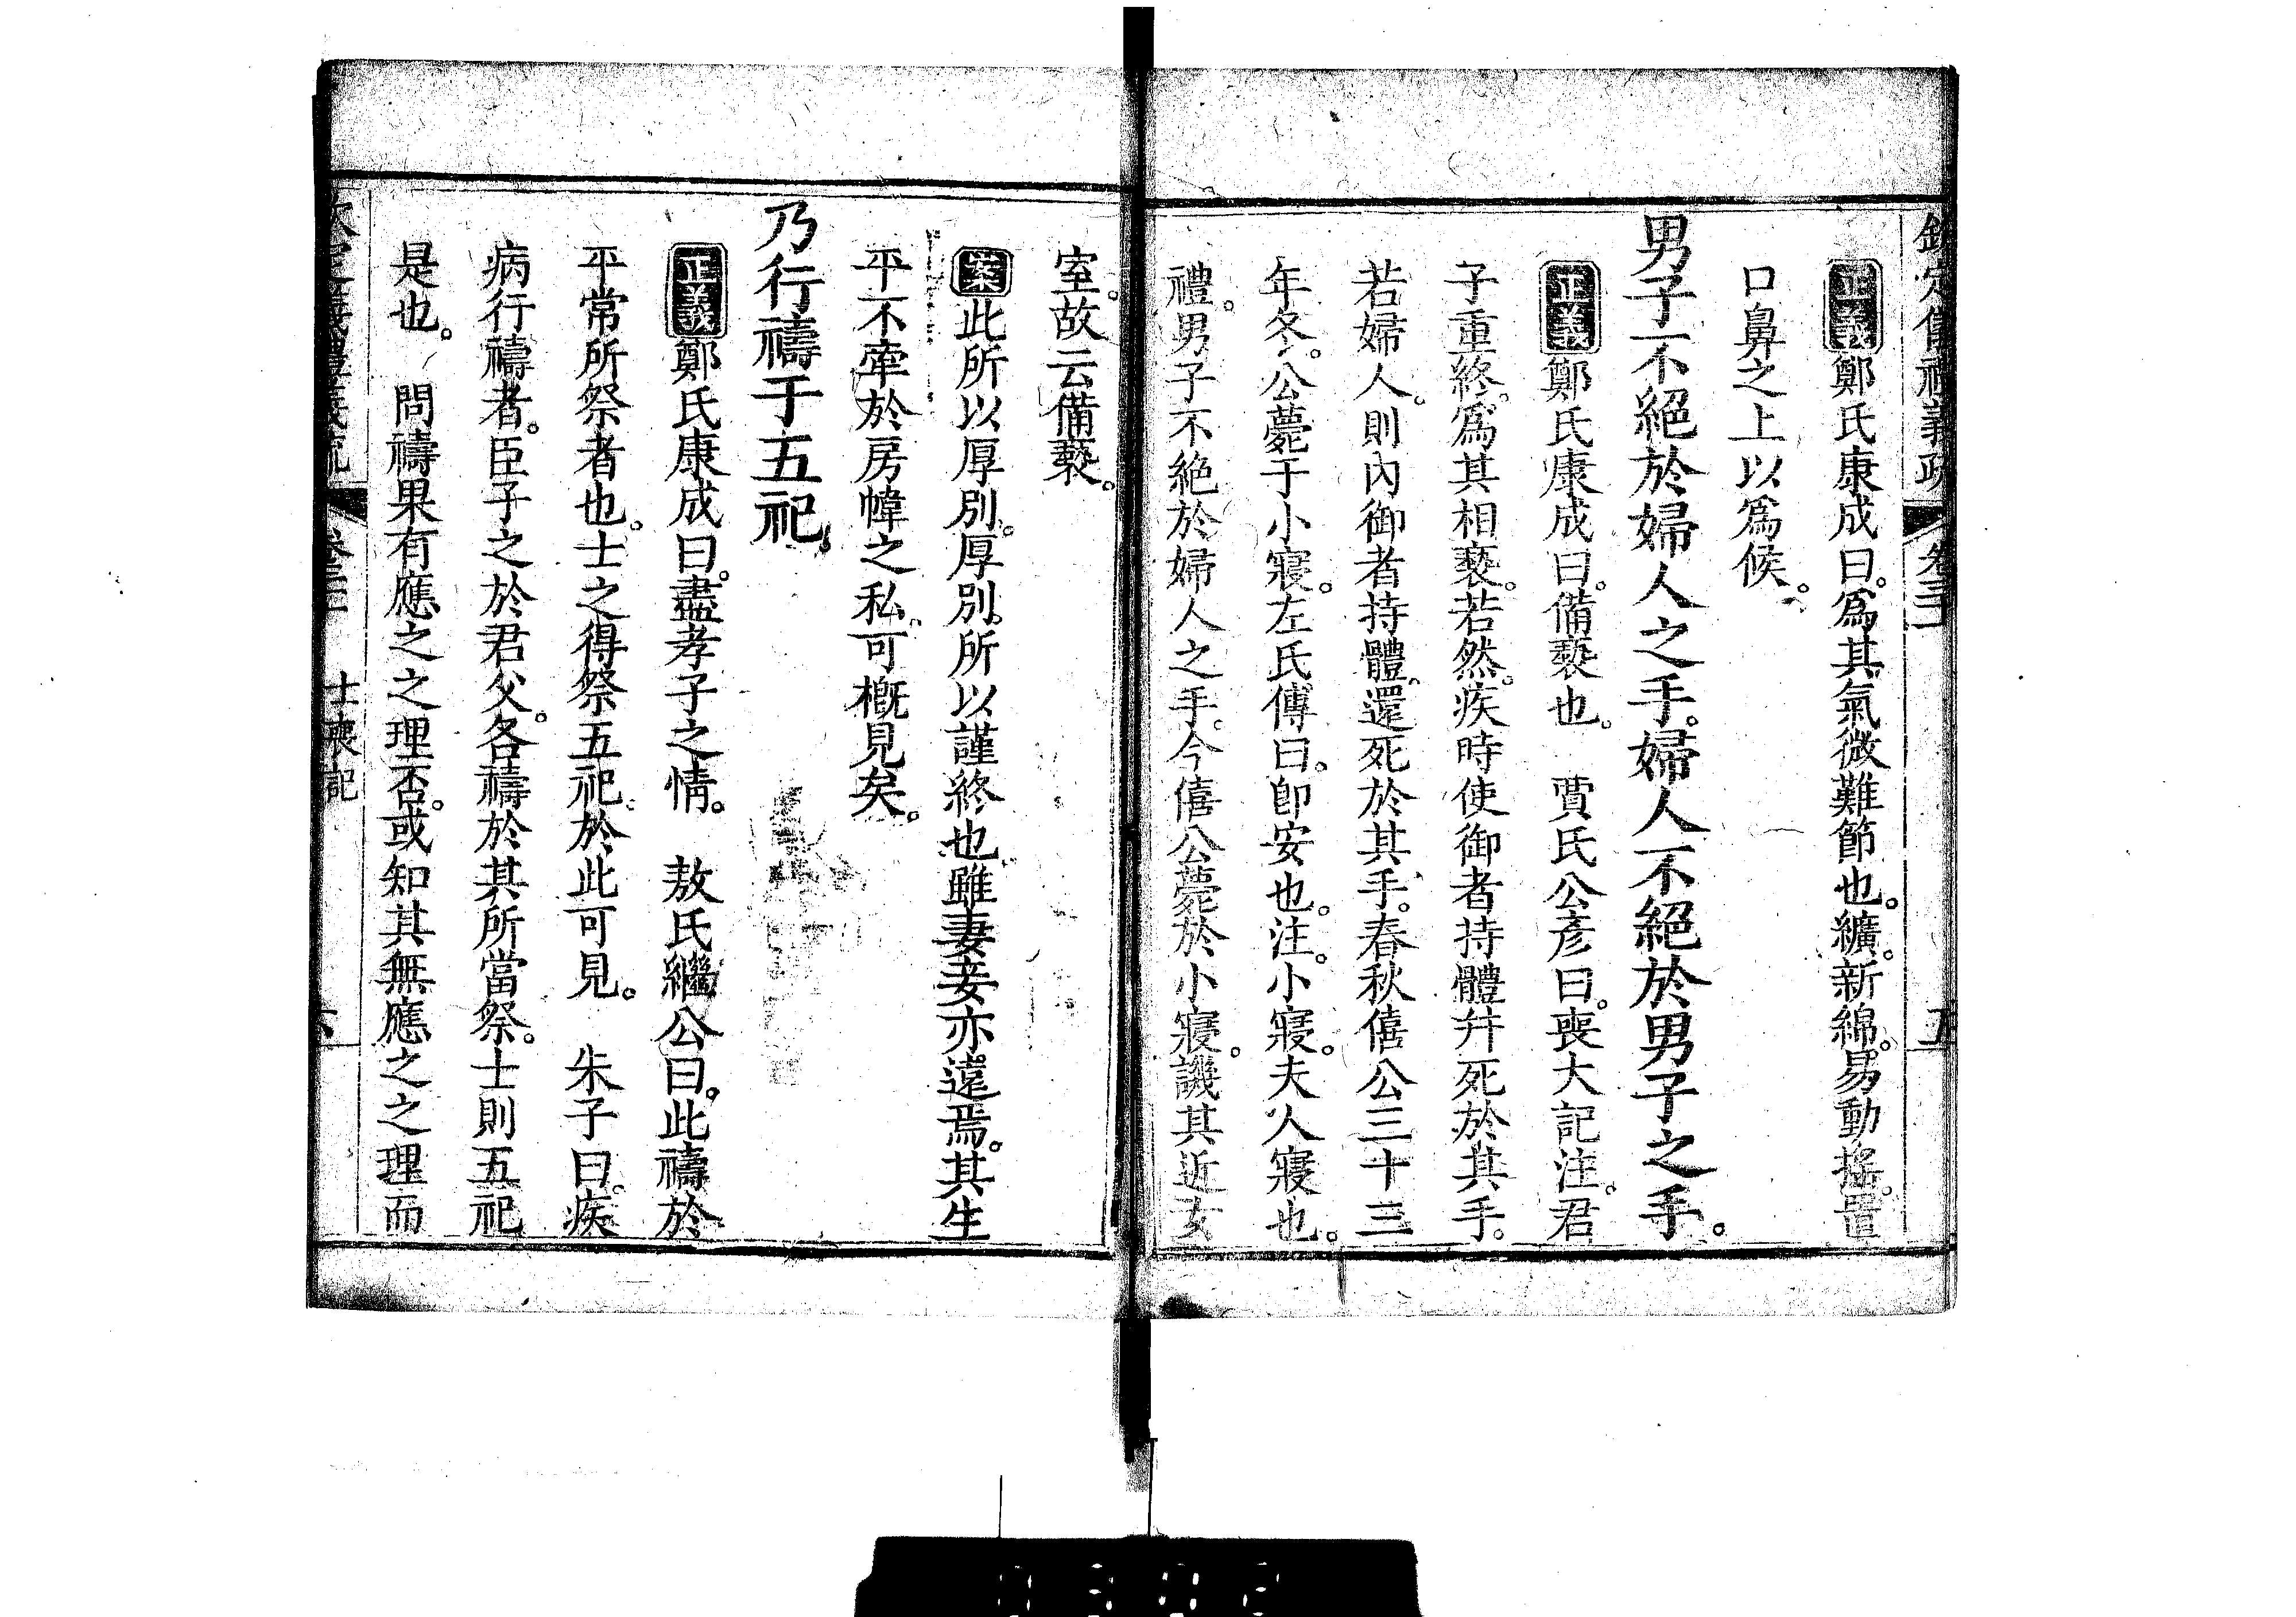 欽定儀禮義疏 卷三十 五
正義鄭氏康成曰。爲其氣微難節也。纊。新綿。易動搖。置
口鼻之上以爲候。
男子不絕於婦人之手。婦人不絕於男子之手。
正義鄭氏康成曰。備褻也。 賈氏公彥曰。喪大記注。君
子重終。爲其相褻。若然。疾時使御者持體。幷死於其手。
若婦人。則內御者持體。還死於其手。春秋僖公三十三
年冬。公薨于小寢。左氏傳曰。卽安也。注。小寢。夫人寢也。
禮。男子不絕於婦人之手。今僖公薨於小寢。譏其近女
室。故云備褻。
案此所以厚別。厚別。所以謹終也。雖妻妾亦遠焉。其生
平不牽於房幃之私。可概見矣。
乃行禱于五祀。
正義鄭氏康成曰。盡孝子之情。 敖氏繼公曰。此禱於
平常所祭者也。士之得祭五祀。於此可見。 朱子曰。疾
病行禱者。臣子之於君父。各禱於其所當祭。士則五祀
是也。 問禱果有應之之理否。或知其無應之之理而
欽定儀禮義疏 卷三十 士喪記 六